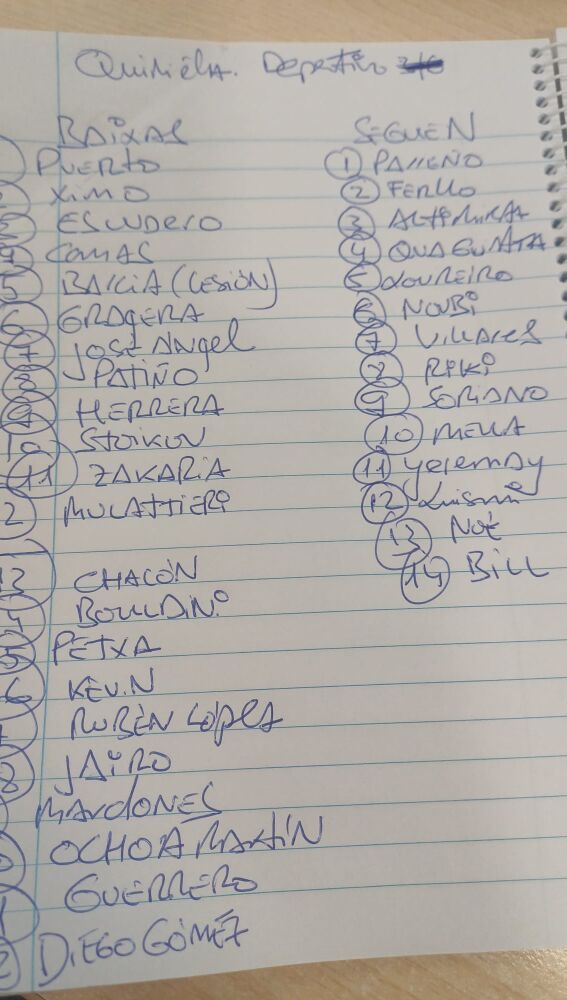 Quiniela. Deportivo
BAIXAS
PUERTO
2 XIMO
3 ESCUDERO
4 COMAS
5 BARCIA (Cesión)
6 GRAGERA
7 JOSÉ ANgel
8 PATIÑO
9 HERRERA
10 STOIKOV
11 ZAKARIA
12 MULATTIERI
13 CHACÓN
14 BOULDINI
15 PETXA
16 KEVIN
RUBÉN LÓPEZ
8 JAIRO
MARDONES
OCHOA MARTÍN
1 GUERRERO
2 DIEGO GÓMEZ
SEGUEN
1 PARREÑO
2 FERLLO
3 ALTIMIRA
4 QUAGLIATA
5 LOUREIRO
6 NOUBI
7 VILLARES
8 RIKI
9 SORIANO
10 MELLA
11 yeremay
12 Luismi
13 NOÉ
14 BILL